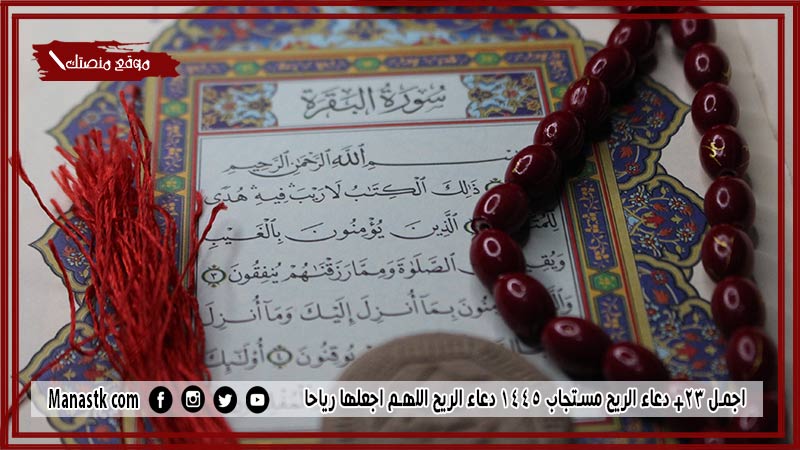 موقع منصتك
سُورَةُ البَقَرَة
اللَّهِ الرَّحْمَٰنِ الرَّحِيمِ
ذَٰلِكَ الْكِتَٰبُ لَا رَيْبَ فِيهِ هُدًى
الَّذِينَ يُؤْمِنُونَ بِالْغَيْبِ
الصَّلَوٰةَ وَمِمَّا رَزَقْنَٰهُمْ يُنفِقُونَ ٣
بِمَآ أُنزِلَ إِلَيْكَ وَمَآ أُنزِلَ
يُوقِنُونَ ٤ أُوْلَٰٓئِكَ
اجمل ٢٣+ دعاء الريح مستجاب ١٤٤٥ دعاء الريح اللهم اجعلها رياحا
Manastk com